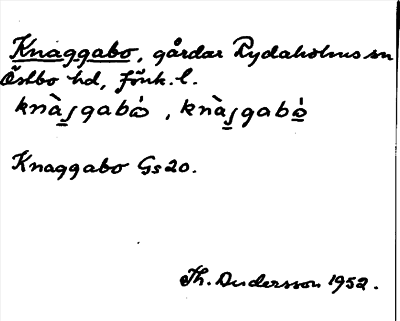 Knaggabo, gårdar Rydaholms sn
Östbo hd, Jönk. l.
Knaggabo Gs 20.
Th. Andersson 1952.